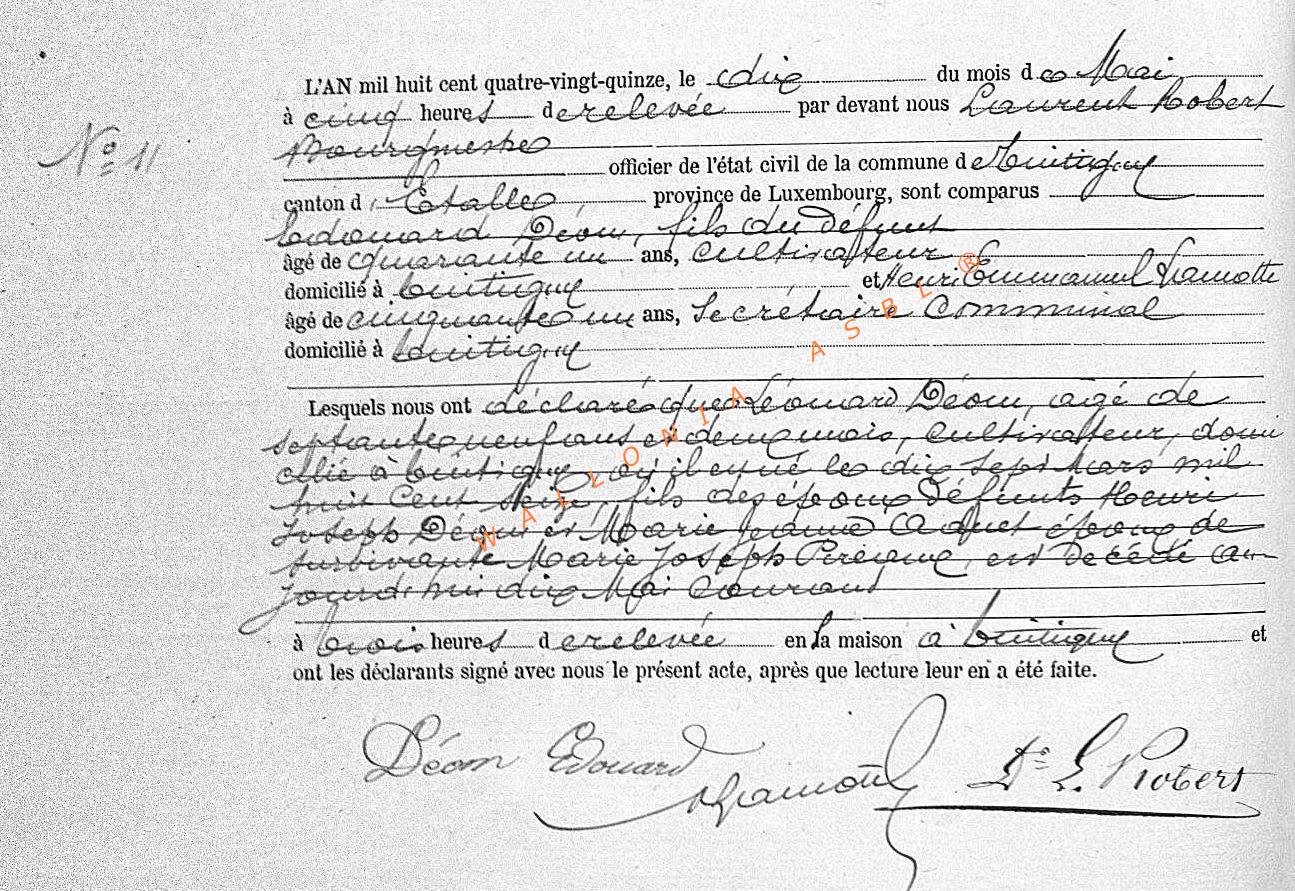 L'AN mil huit cent quatre-vingt-quinze, le dix du mois de Mai
à cinq heures de relevée par devant nous Laurent Robert
N° 11
Bourgmestre
officier de l'état civil de la commune de Tintigny
canton d'Etalle, province de Luxembourg, sont comparus
Edouard Déom, fils du défunt
âgé de quarante un ans, cultivateur
domicilié à Tintigny et Henri Emmanuel Lamotte
âgé de cinquante un ans, Secrétaire Communal
domicilié à Tintigny
Lesquels nous ont déclaré que Léonard Déom, agé de
septante neuf ans et demi mois, cultivateur, domi
cilié à Tintigny, où il est né le dix sept Mars mil
huit cent seize, fils des époux défunts Henri
Joseph Déom et Marie Jeanne époux de
survivante Marie Joseph est décédé au
jourd'hui dix Mai courant
à trois heures de relevée en sa maison à Tintigny et
ont les déclarants signé avec nous le présent acte, après que lecture leur en a été faite.
Déom Edouard Lamotte Dr L. Robert
WALLONIA ASBL ®